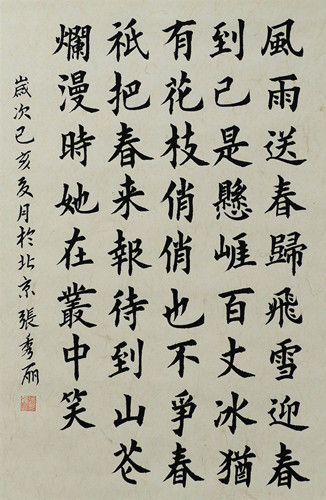 風雨送春歸飛雪迎春
到已是懸崕百丈冰猶
有花枝俏俏也不爭春
祇把春来報待到山芲
爛漫時她在叢中笑
歲次己亥夏月於北京張秀丽